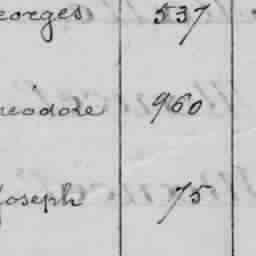 eorges 537
heodore 960
Joseph 75